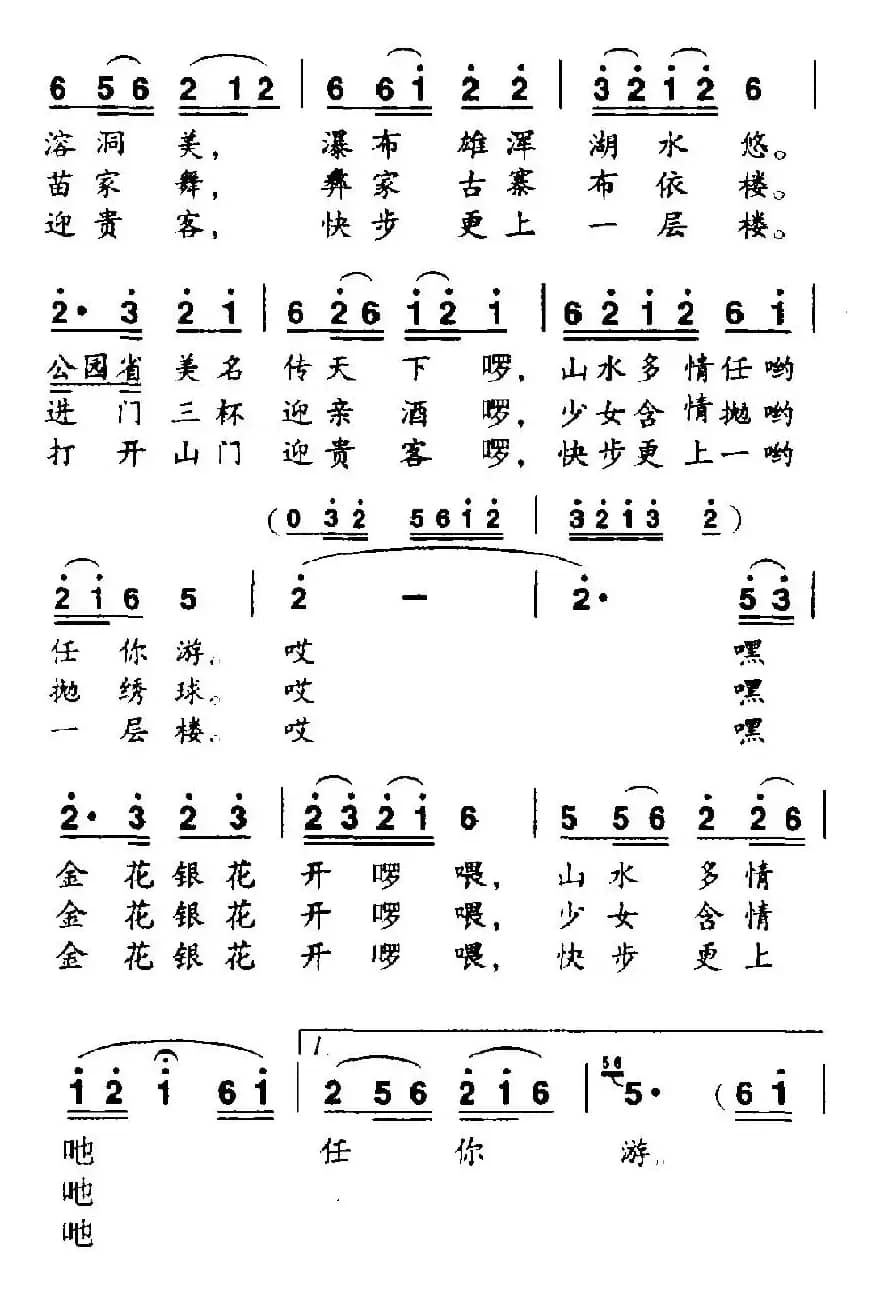 6 5 6 2 1 2 | 6 6 1 2 2 | 3 2 1 2 6 |
溶洞美，瀑布雄浑湖水悠。
苗家舞，彝家古寨布依楼。
迎贵客，快步更上一层楼。
2· 3 2 1 | 6 2 6 1 2 1 | 6 2 1 2 6 1 |
公园省美名传天下啰，山水多情任哟
进门三杯迎亲酒啰，少女含情抛哟
打开山门迎贵客啰，快步更上一哟
（0 3 2 5 6 1 2 | 3 2 1 3 2）
2 1 6 5 | 2 — | 2· 5 3 |
任你游。哎 嘿
抛绣球。哎 嘿
一层楼。哎 嘿
2· 3 2 3 | 2 3 2 1 6 | 5 5 6 2 2 6 |
金花银花开啰喂，山水多情
金花银花开啰喂，少女含情
金花银花开啰喂，快步更上
1 2 1 6 1 | 1. 2 5 6 2 1 6 | 56 5· （6 1 |
吔 任你游。
吔
吔